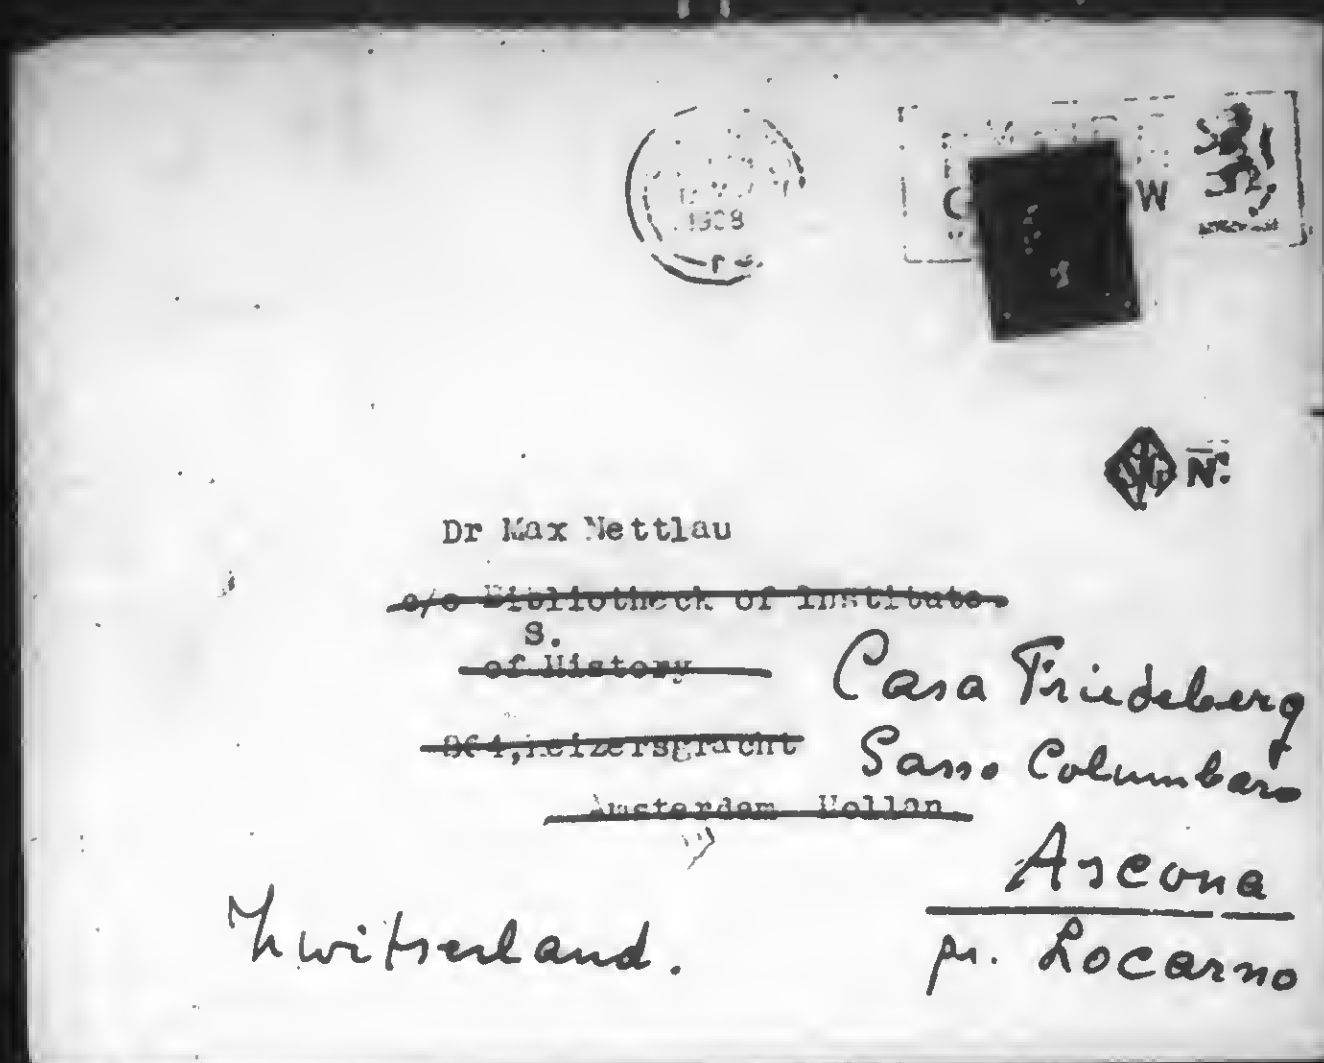 1938
W
Nº
Dr Max Nettlau
c/o Bibliotheek of Institute
S.
of History
264,Keizersgracht
Amsterdam Hollan
Casa Friedeberg
Sasso Columbaro
Ascona
pr. Locarno
Zwitserland.